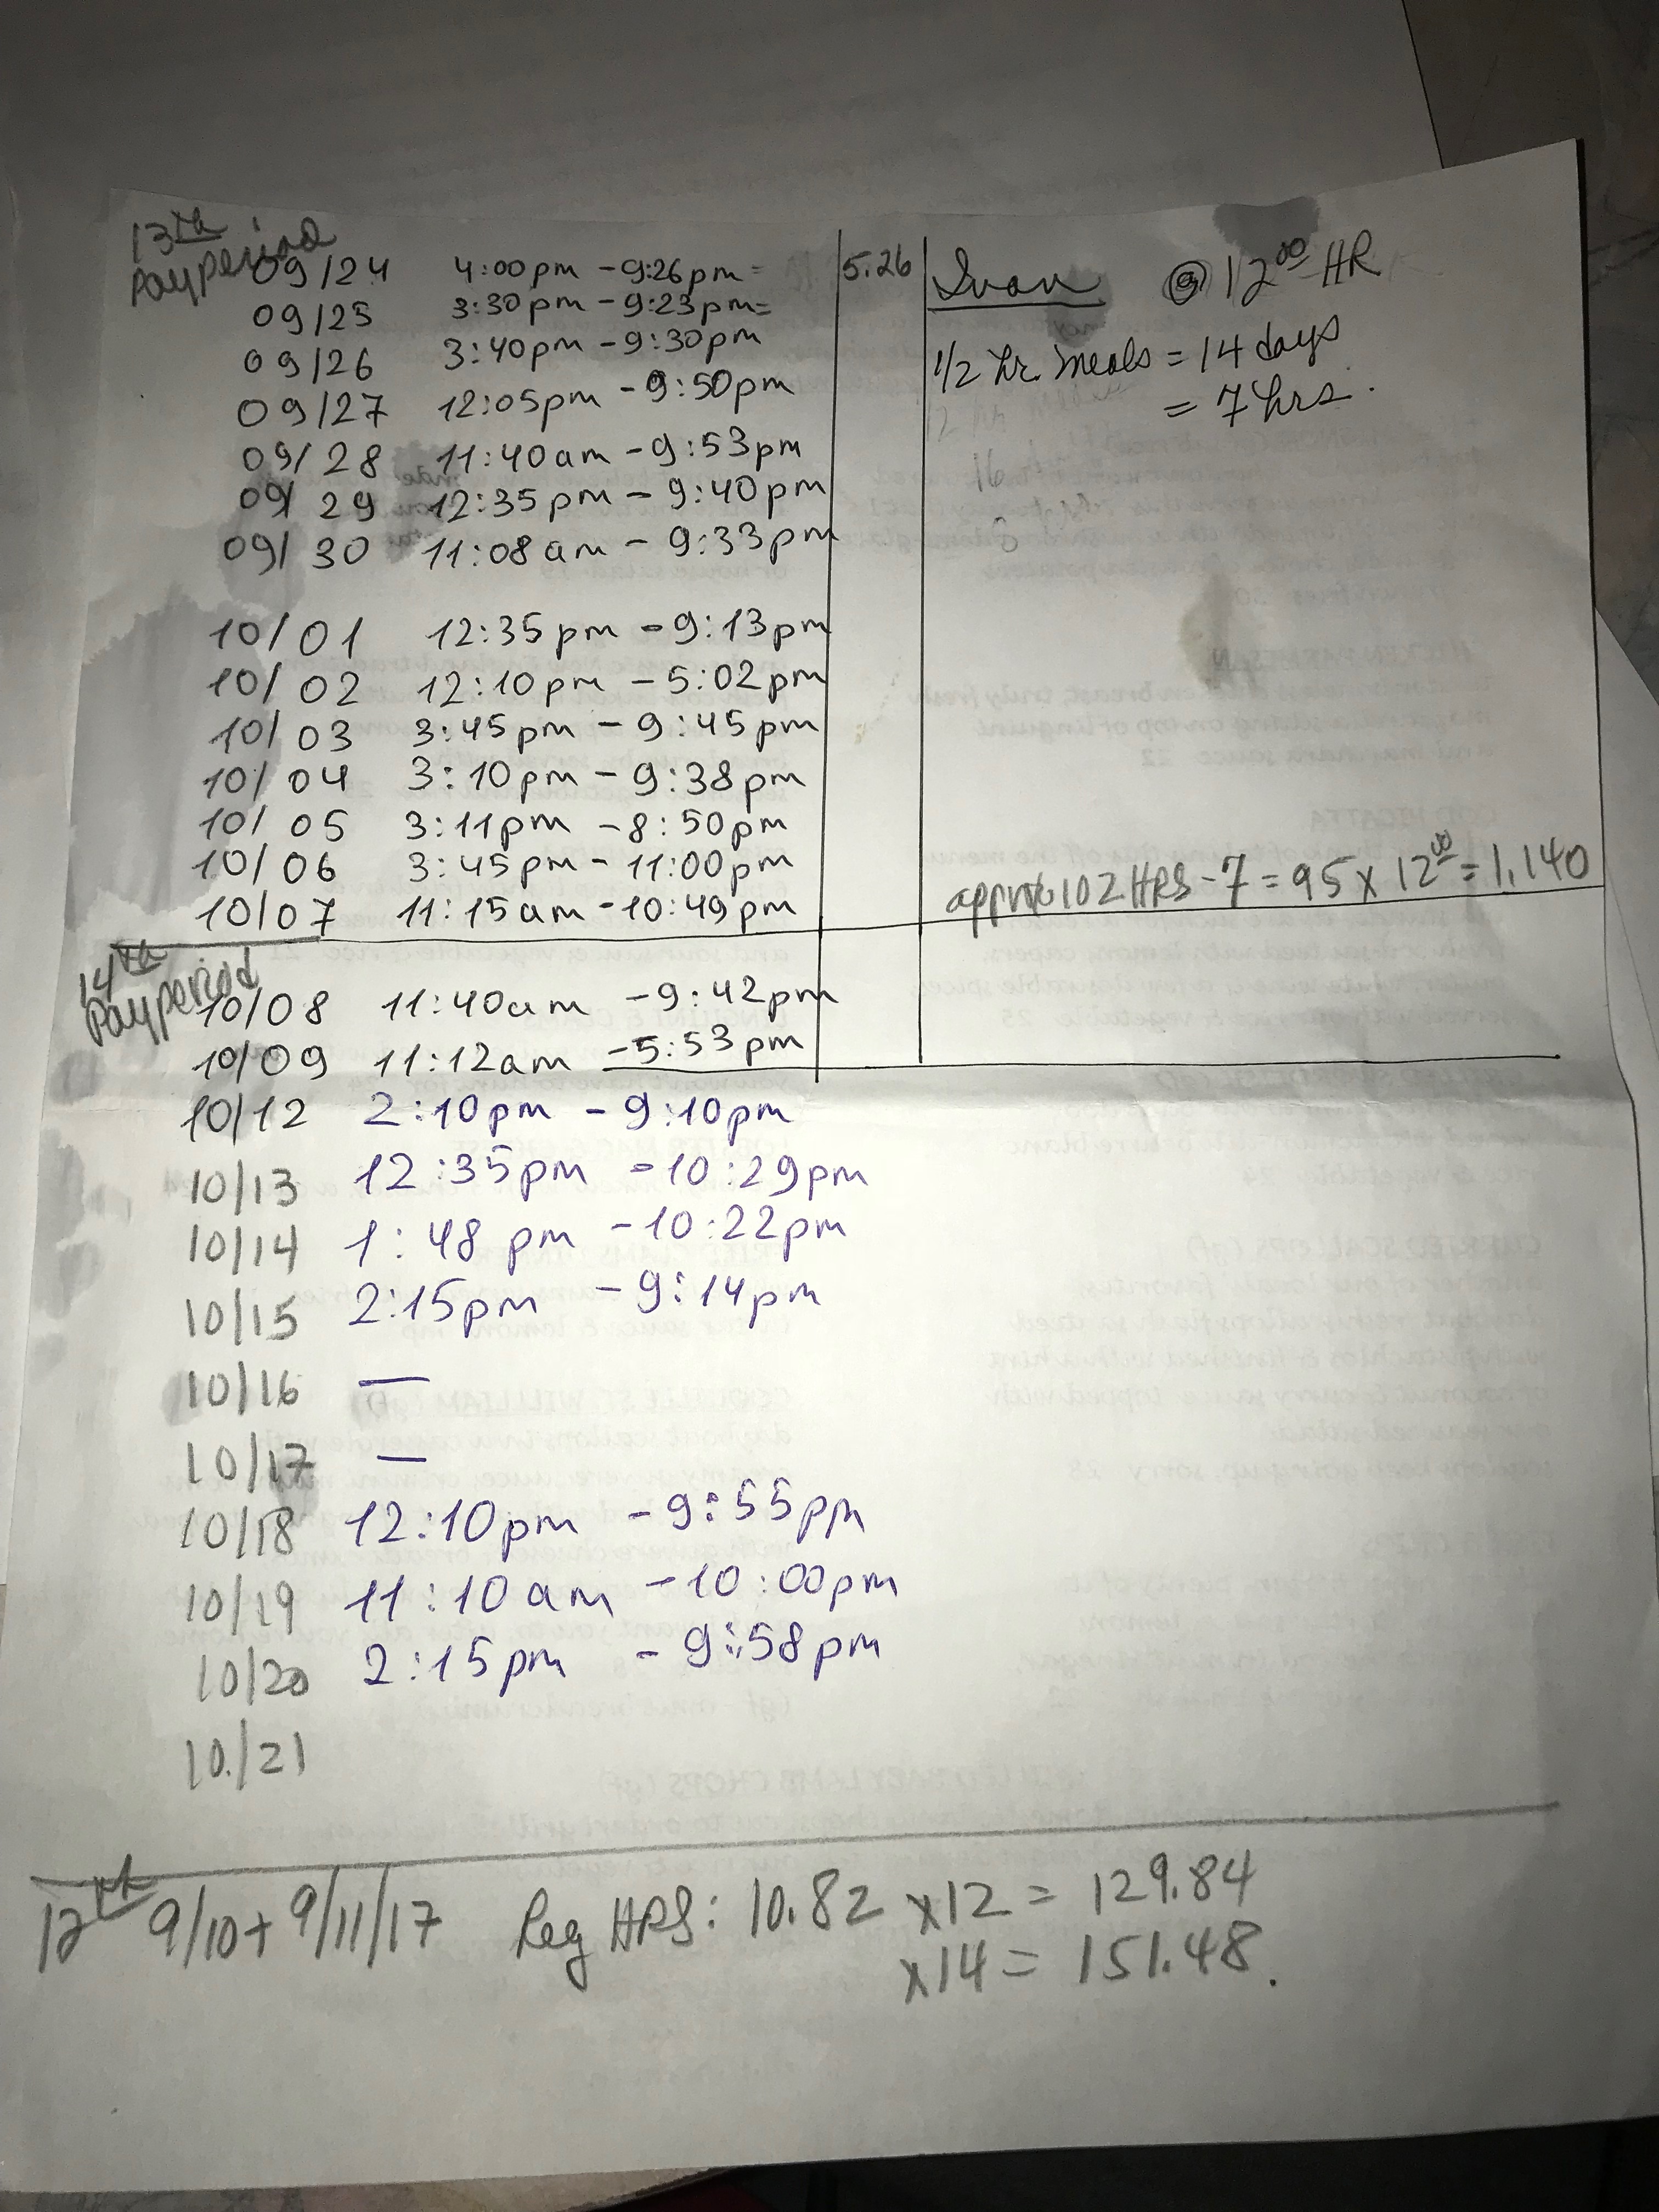 13th
Pay period
09/24 4:00pm - 9:26pm = 5.26
09/25 3:30pm - 9:23pm =
09/26 3:40pm - 9:30pm
09/27 12:05pm - 9:50pm
09/28 11:40am - 9:53pm
09/29 12:35pm - 9:40pm
09/30 11:08am - 9:33pm
10/01 12:35pm - 9:13pm
10/02 12:10pm - 5:02pm
10/03 3:45pm - 9:45pm
10/04 3:10pm - 9:38pm
10/05 3:11pm - 8:50pm
10/06 3:45pm - 11:00pm
10/07 11:15am - 10:49pm
Ivan @ 12.00 HR
1/2 hr. meals = 14 days
= 7 hrs.
16
8
approx 102 HRS - 7 = 95 x 12.00 = 1,140
14th
Pay period
10/08 11:40am - 9:42pm
10/09 11:12am - 5:53pm
10/12 2:10pm - 9:10pm
10/13 12:35pm - 10:29pm
10/14 1:48pm - 10:22pm
10/15 2:15pm - 9:14pm
10/16 —
10/17 —
10/18 12:10pm - 9:55pm
10/19 11:10am - 10:00pm
10/20 2:15pm - 9:58pm
10/21
12th 9/10 + 9/11/17 Reg HRS: 10.82 x12 = 129.84
x14 = 151.48.